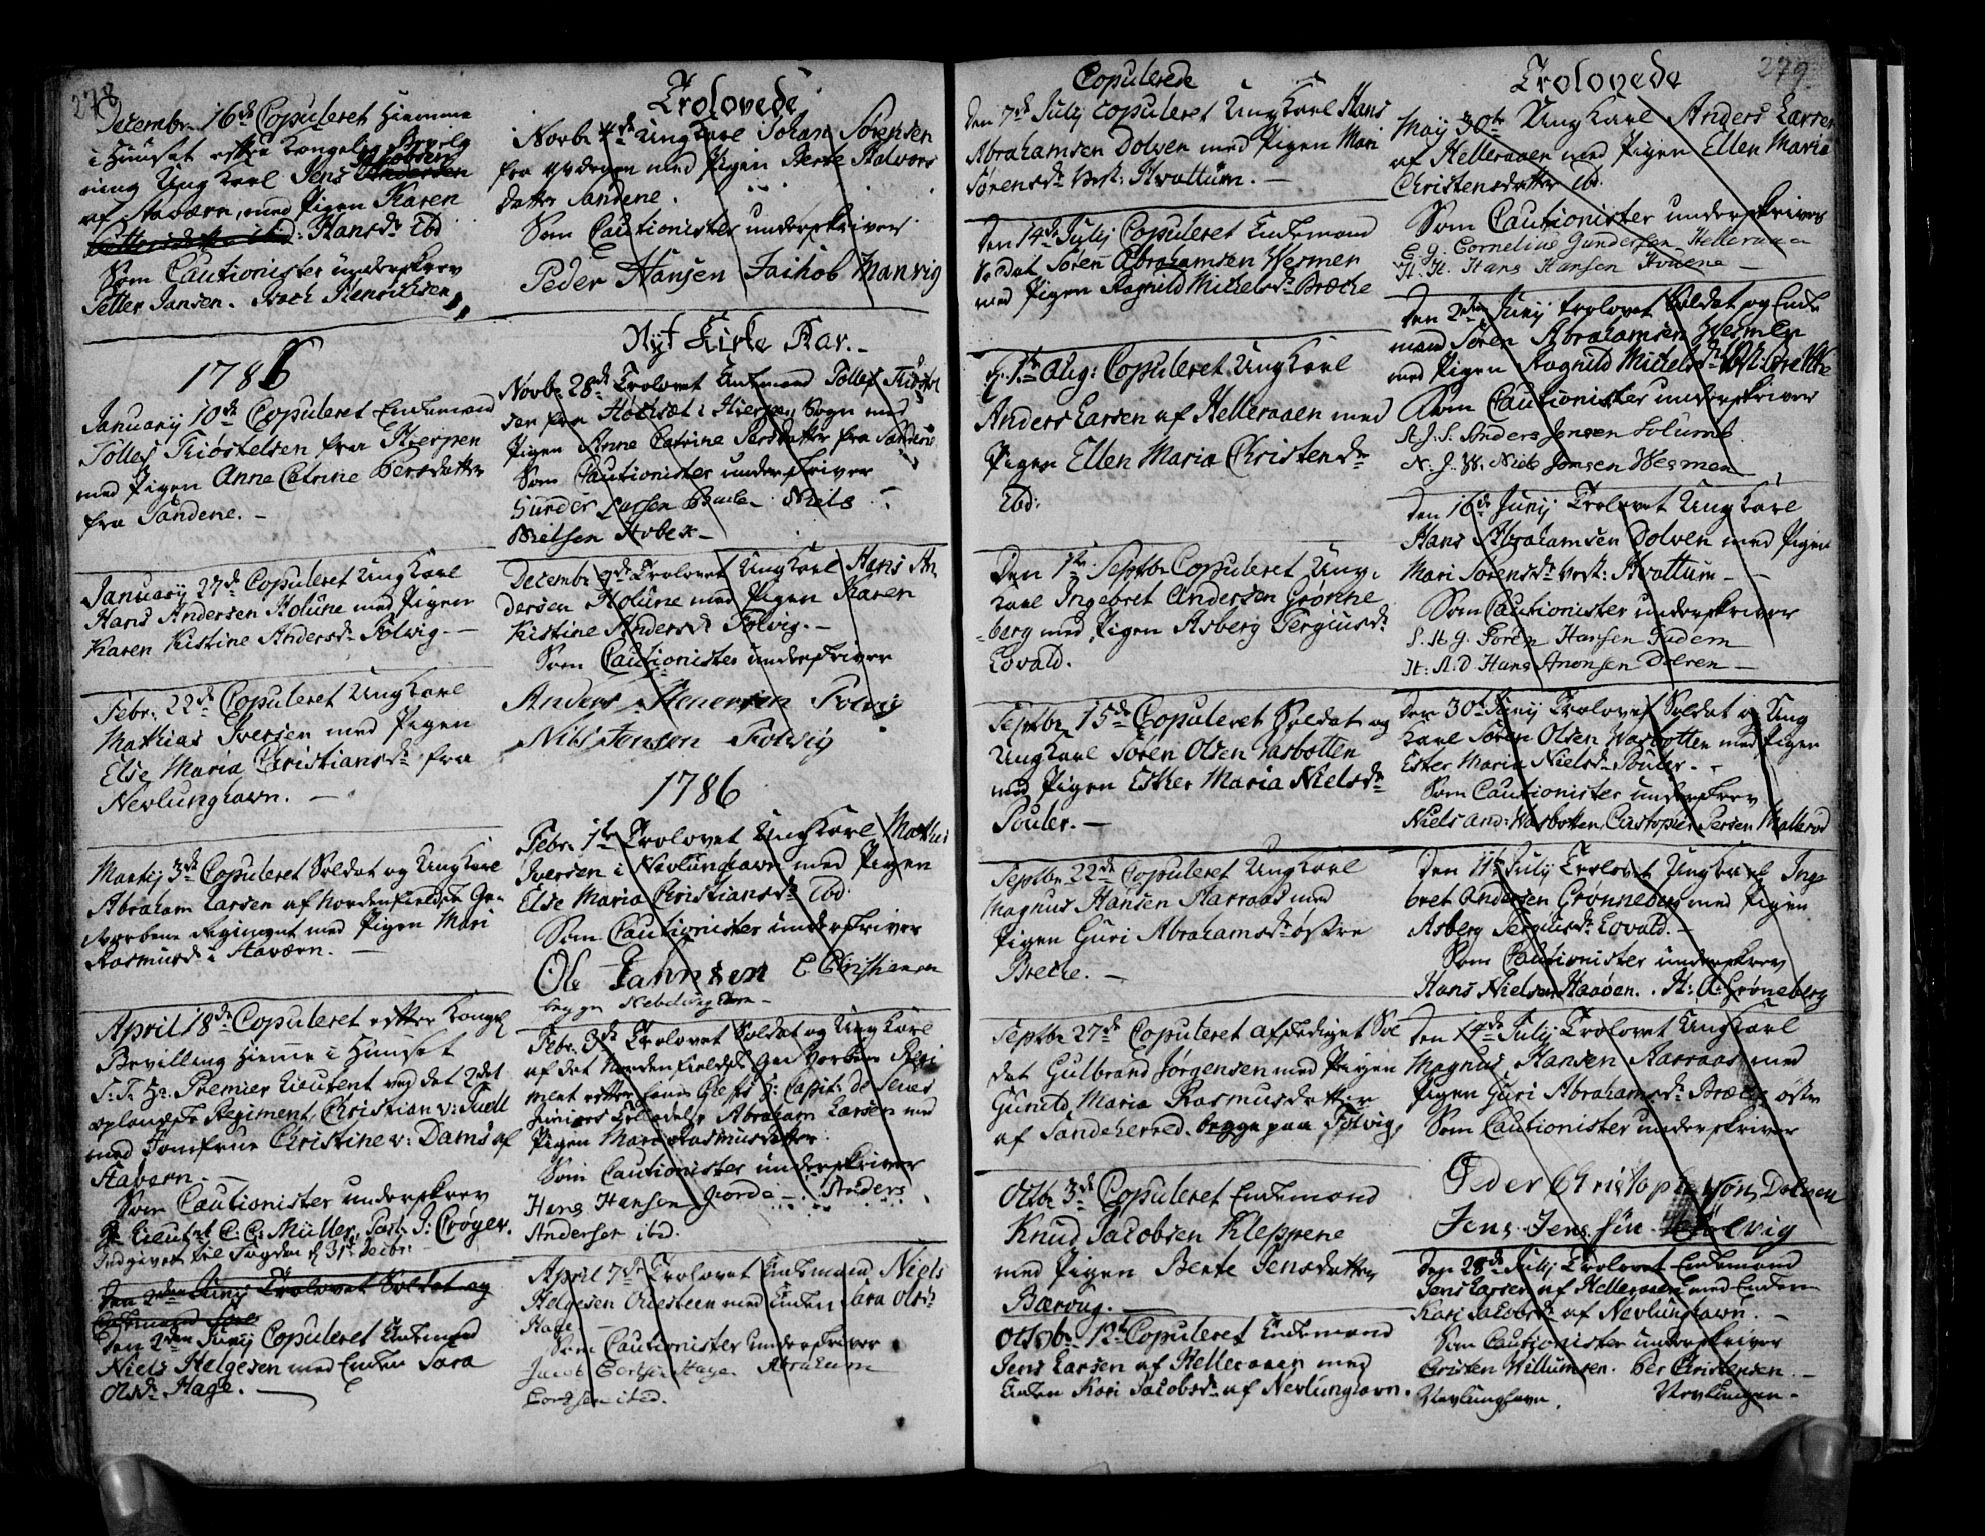 278
Decembr. 16de Copuleret hiemme
i Huuset efter Kongelig Bevilg
ning Ung Karl Jens Jacobsen
af Staværn, med Pigen Karen
Hansdr. Ibd.
Som Cautionister underskrev
Petter Jansen. Henrichsen
1786
January 10de Copuleret Enkemand
Tollef Kiøstelsen fra Hierpen
med Pigen Anne Catrine Persdatter
fra Sandene. -
January 27de Copuleret Ung Karl
Hans Andersen Holune med Pigen
Karen Kistine Andersdr. Folvig. -
Febr. 22de Copuleret Ung Karl
Mathias Iversen med Pigen
Else Maria Christiansdr. fra
Nevlunghavn. -
Martij 3de Copuleret Soldat og Ung Karl
Abraham Larsen af Nordenfieldske Ge-
vorbene Regiment med Pigen Mari
Rasmusdr. i Staværn. -
April 18de Copuleret efter Kongl.
Bevilling hieme i Huuset
S. T. Hr. Premier Lieutent ved det 2det
oplandske Regiment Christian v: Tuell
med Jomfrue Christine v: Dams af
Stavern. -
Som Cautionister underskrev
Lieutnt C: C: Müller, J: Crøger.
Indgivet til Fogden d. 31te Decbr.
Den 2den Junij Trolovet Soldat og
Enkemand
Den 2den Junij Copuleret Enkemand
Niels Helgesen med Enken Sara
Olsdr. Hage. -
Trolovede
Novb. 4de Ung Karl Johan Sørensen
fra med Pigen Berte Halvors
datter Sandene.
Som Cautionister underskriver
Peder Hansen Jaihob Manvig
Nyt Kirke Aar. -
Novbr. 28de Trolovet Enkemand Tollef Kiøstel
sen fra i Hierpen Sogn med
Pigen Anne Catrine Persdatter fra Sandene
Som Cautionister underskriver
Gunder Larsen Niels
Nielsen Hobek -
Decembr. 9de Trolovet Ung Karl Hans An
dersen Holune med Pigen Karen
Kistine Andersdr. Folvig. -
Som Cautionister underskriver
Anders Folvig
Nils Jenson Folvig
1786
Febr. 1te Trolovet Ung Karl Mathias
Iversen i Nevlunghavn med Pigen
Else Maria Christiansdr. Ibd.
Som Cautionister underskriver
Ole Jannsen C Christiansen
begge
Febr. 3de Trolovet Soldat og Ung Karl
af det Nordenfieldske Gevorbene Regi
ment efter hans Chefs Hr. Capit: de Seues
Juniors Tilladelse Abraham Larsen med
Pigen Mari Rasmusdatter
Som Cautionister underskriver
Hans Hansen Jorde - Anders
Andersen ibid.
April 7de Trolovet Enkemand Niels
Helgesen Oversteen med Enken Sara Olsdr.
Hage -
Som Cautionister underskriver
Jacob Hage Abraham
ibid.
Copulerede
Den 7de Julij Copuleret Ung Karl Hans
Abrahamsen Dolven med Pigen Mari
Sørensdr. Vest: Hvattum. -
Den 14de Julij Copuleret Enkemand
Soldat Søren Abrahamsen Wesmen
med Pigen Ragnild Michelsdr. Bræcke
D. 1te Aug: Copuleret Ung Karl
Anders Larsen af Helleraaen med
Pigen Ellen Maria Christensdr.
Ibd:
Den 1te Septbr. Copuleret Ung
Karl Ingebret Andersen Grønne
berg med Pigen Asberg Tergiusdr.
Lovald.
Septbr. 15de Copuleret Soldat og
Ung Karl Søren Olsen Vasbotten
med Pigen Esther Maria Nielsdr.
Pouler. -
Septbr. 22de Copuleret Ung Karl
Magnus Hansen Aarraas med
Pigen Guri Abrahamsdr. østre
Breche. -
Septbr. 27de Copuleret afskediget Sol
dat Gulbrand Jørgensen med Pigen
Gunild Maria Rasmusdatter
af Sandeherred. begge paa Folvig.
Octbr. 3de Copuleret Enkemand
Knud Jacobsen Kleppene
med Pigen Bente Jensdatter
Bærvug. -
Octobr. 12te Copuleret Enkemand
Jens Larsen af Helleraaen med
Enken Kari Jacobsdr. af Nevlunghavn.
279
Trolovede
Maij 30te Ung Karl Anders Larsen
af Helleraaen med Pigen Ellen Maria
Christensdatter ibd.
Som Cautionister underskriver
C. G. Cornelius Gundersen Helleraaen
H. H. Hans Hansen Hvaene -
Den 2den Junij trolovet Soldat og Enke
mand Søren Abrahamsen Wesmen
med Pigen Ragnild Michelsdr. Bræcke
Som Cautionister underskriver
A. J. S. Anders Jonsen Solumb
N. J. W. Niels Jonsen Wesmen
Den 16de Junij Trolovet Ung Karl
Hans Abrahamsen Dolven med Pigen
Mari Sørensdr. Vest: Hvattum -
Som Cautionister underskriver
S. H. G. Søren Hansen Gudem
H. A. D. Hans Anonsen Dolven -
Den 30te Junij Trolovet Soldat og Ung
Karl Søren Olsen Wasbotten med Pigen
Ester Maria Nielsdr. Pouler. -
Som Cautionister underskrev
Niels And: Wasbotten. Cristopher Persen Mallerød
Den 11te Julij Trolovet Ung Karl Inge
bret Andersen Grønneberg med Pigen
Asberg Tergiusdr. Lovald. -
Som Cautionister underskrev
Hans Nielsen Haaøen. H: A: Grøneberg
Den 14de Julij Trolovet Ung Karl
Magnus Hansen Aarraas med
Pigen Guri Abrahamsdr. Bræche østre
Som Cautionister underskriver
Peder Christophersøn Dolven
Jens Jensøn Folvig
Den 28de Julij Trolovet Enkemand
Jens Larsen af Helleraaen med Enken
Kari Jacobsdr. af Nevlunghavn. -
Som Cautionister underskriver
Cristen Willumsen. Per Christensen
Nevlunghavn. Nevlungen -